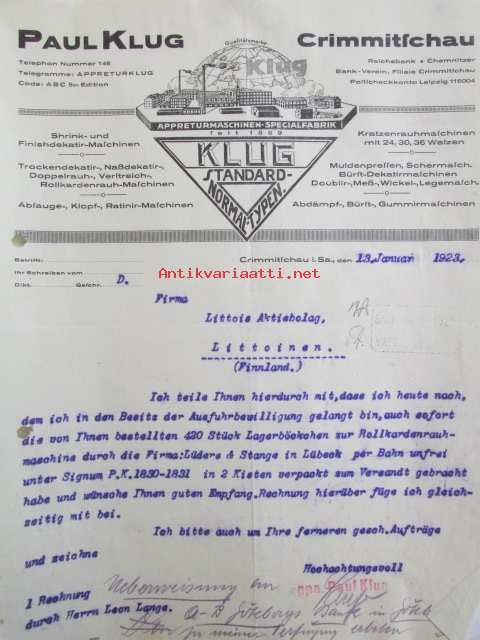 PAUL KLUG
Qualitätsmarke
Crimmitſchau
Klug
Telephon Nummer 146
Telegramme: APPRETURKLUG
Code: ABC 5te Edition
Reichsbank + Chemnitzer
Bank-Verein, Filiale Crimmitſchau
Poſtſcheckkonto Leipzig 116004
APPRETURMASCHINEN-SPEZIALFABRIK
KLUG
STANDARD-
NORMAL-TYPEN.
Shrink- und
Finishdekatir-Maſchinen
Trockendekatir-, Naßdekatir-,
Doppelrauh-, Verſtreich-,
Rollkardenrauh-Maſchinen
Abſauge-, Klopf-, Ratinir-Maſchinen
Kratzenrauhmaſchinen
mit 24, 30, 36 Walzen
Muldenpreſſen, Schermaſch.
Bürſt-Dekatirmaſchinen
Doublir-, Meß-, Wickel-, Legemaſch.
Abdämpf-, Bürſt-, Gummirmaſchinen
Betrifft:
Ihr Schreiben vom
Dikt. Geſchr. D.
Crimmitſchau i. Sa., den 13. Januar 1923.
Antikvariaatti.net
Firma
Littois Aktiebolag,
Littoinen.
(Finnland.)
Ich teile Ihnen hierdurch mit, dass ich heute nach,
dem ich in den Besitz der Ausfuhrbewilligung gelangt bin, auch sofort
die von Ihnen bestellten 420 Stück Lagerböckchen zur Rollkardenrauh-
maschine durch die Firma: Lüders & Stange in Lübeck per Bahn unfrei
unter Signum P.K. 1830-1831 in 2 Kisten verpackt zum Versandt gebracht
habe und wünsche Ihnen guten Empfang. Rechnung hierüber füge ich gleich-
zeitig mit bei.
Ich bitte auch um Ihre ferneren gesch. Aufträge
und zeichne
Hochachtungsvoll
ppa. Paul Klug
1 Rechnung
durch Herrn Leon Lange.
Ueberweisung an
A-B Göteborgs Bank in Göteb
zu meiner Verfügung erbeten